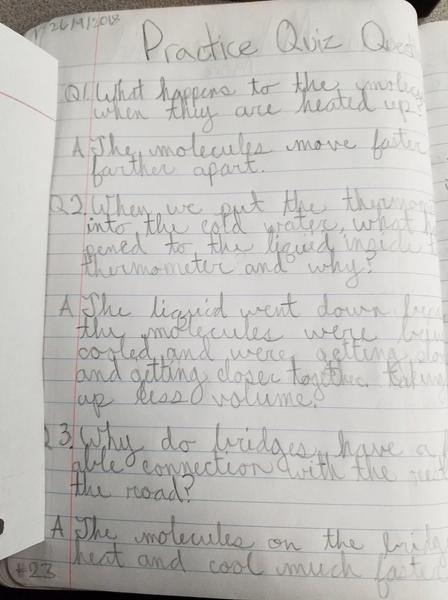 26/9/2018
Practice Quiz
Q1. What happens to the
when they are heated up?
A The molecules move faster
farther apart.
Q2. When we put the
into the cold water, what
pened to the liquid inside
thermometer and why?
A The liquid went down
the molecules were
cooled and were getting
and getting closer together. Taking
up less volume.
3. Why do bridges have a
able connection with the
the road?
A The molecules on the
heat and cool much faster
#23